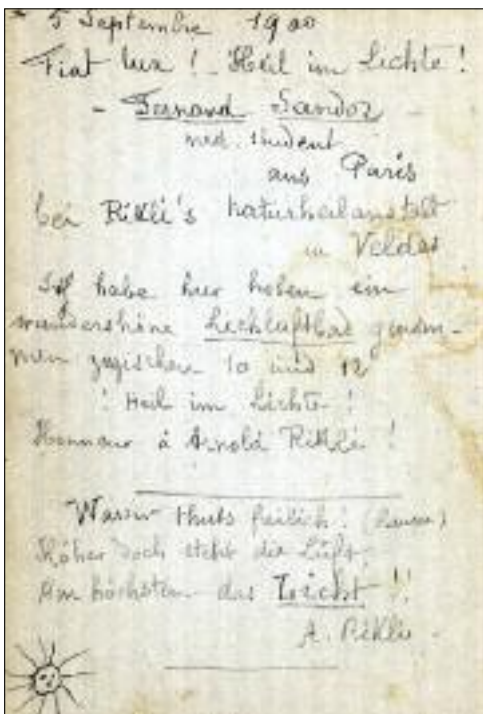 5 Septembre 1900
Fiat lux ! - Heil im Lichte !
- Fernand Sandoz -
med. student
aus Paris
bei Rikli's Naturheilanstalt
in Veldes
Ich habe hier hoben ein
wundershöne Lichluftbad genom-
men zwischen 10 und 12
! Heil im Lichte !
Honneur à Arnold Rikli !
Wasser thuts freilich !
Höher doch steht die Luft,
Am höchsten das Licht !!
A. Rikli -